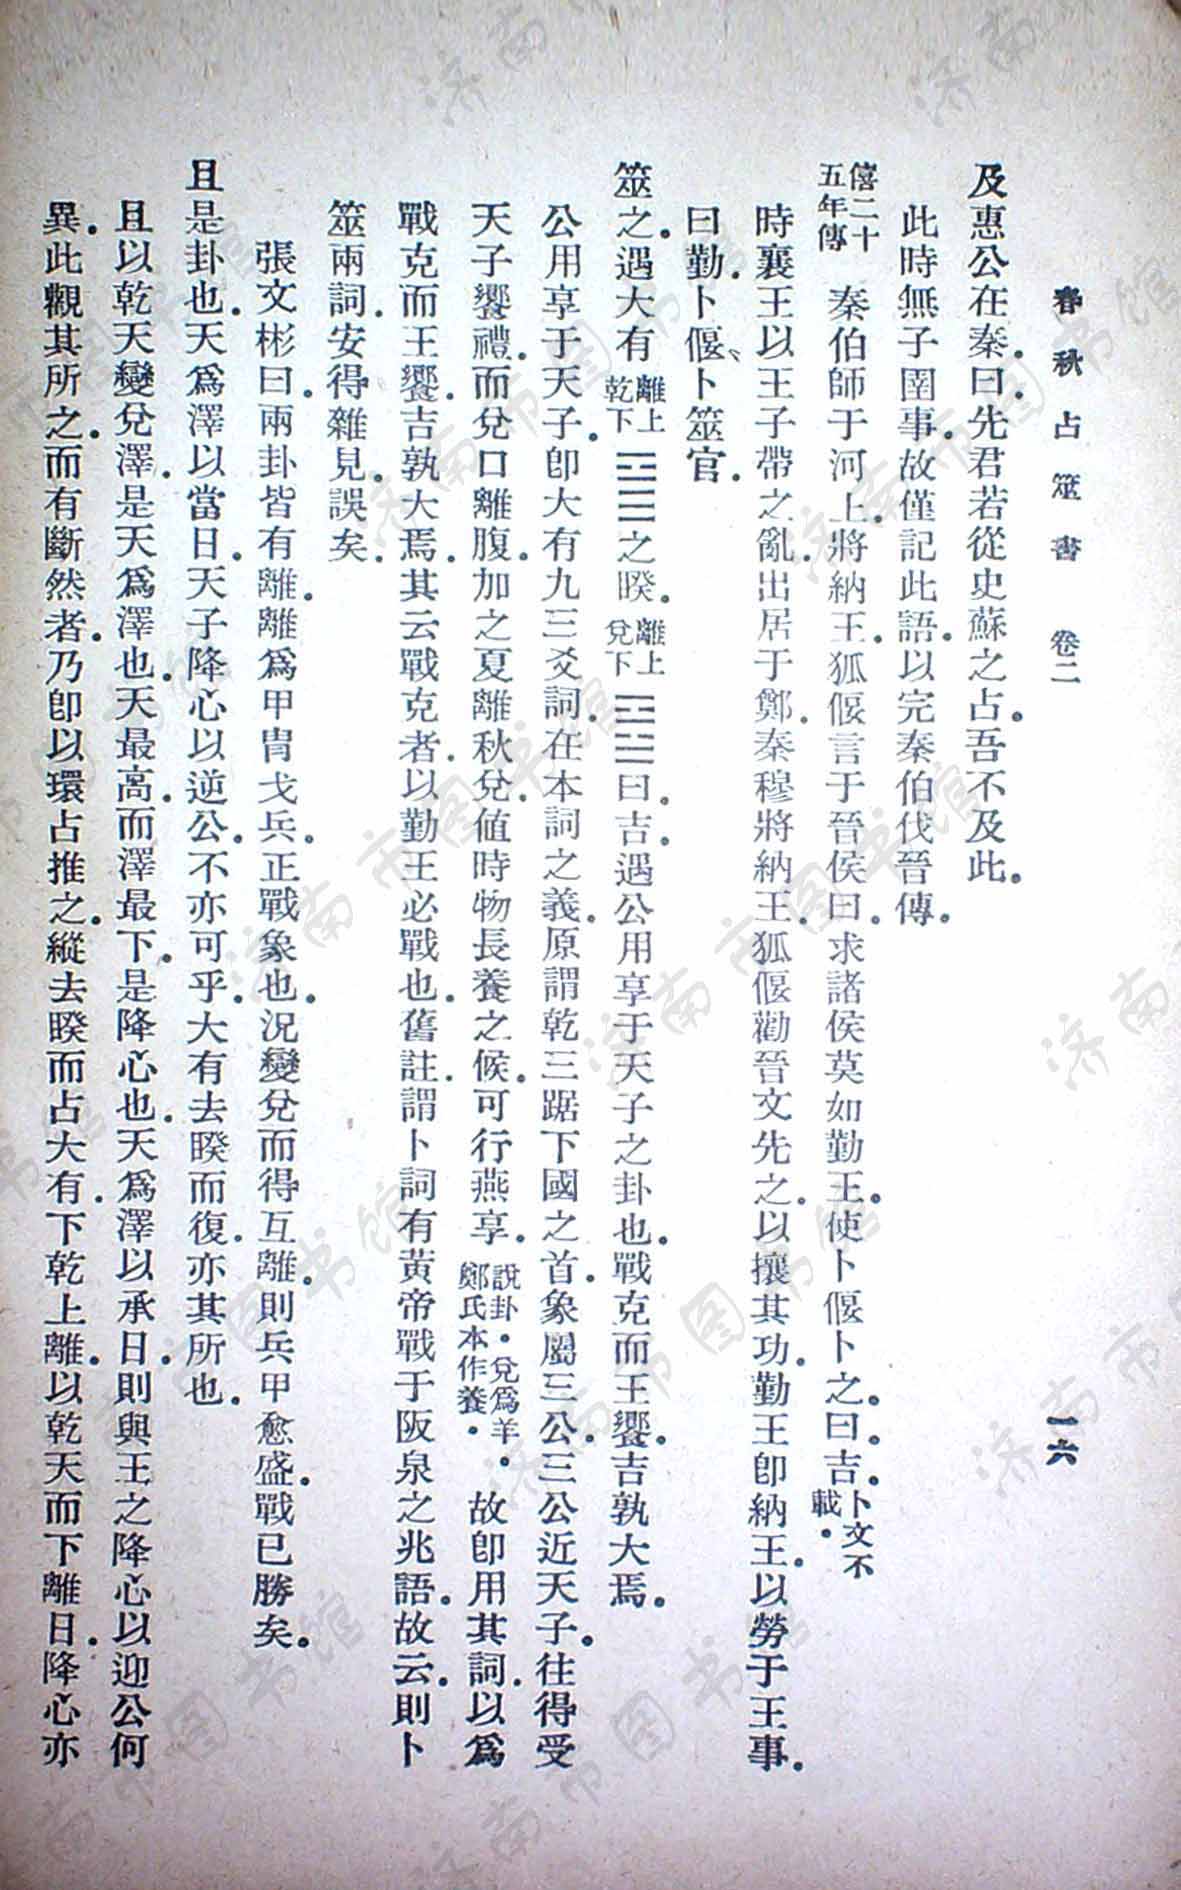 春秋占筮書 卷二 一六
及惠公在秦。曰。先君若從史蘇之占。吾不及此。
此時無子圉事。故僅記此語。以完秦伯伐晉傳。
僖二十五年傳 秦伯師于河上。將納王。狐偃言于晉侯曰。求諸侯莫如勤王。使卜偃卜之。曰。吉。卜文不載。
時襄王以王子帶之亂。出居于鄭。秦穆將納王。狐偃勸晉文先之。以攘其功。勤王卽納王。以勞于王事。
曰勤。卜偃、卜筮官。
筮之。遇大有離上乾下䷍之睽。離上兌下䷥曰。吉。遇公用享于天子之卦也。戰克而王饗。吉孰大焉。
公用享于天子。卽大有九三爻詞。在本詞之義。原謂乾三踞下國之首。象屬三公。三公近天子。往得受
天子饗禮。而兌口離腹。加之夏離秋兌。値時物長養之候。可行燕享。說卦。兌爲羊。鄭氏本作養。故卽用其詞。以爲
戰克而王饗。吉孰大焉。其云戰克者。以勤王必戰也。舊註。謂卜詞有黃帝戰于阪泉之兆語。故云。則卜
筮兩詞。安得雜見。誤矣。
張文彬曰。兩卦皆有離。離爲甲冑戈兵。正戰象也。況變兌而得互離。則兵甲愈盛。戰已勝矣。
且是卦也。天爲澤以當日。天子降心以逆公。不亦可乎。大有去睽而復。亦其所也。
且以乾天變兌澤。是天爲澤也。天最高而澤最下。是降心也。天爲澤以承日。則與王之降心以迎公何
異。此觀其所之。而有斷然者。乃卽以環占推之。縱去睽而占大有。下乾上離。以乾天而下離日。降心亦